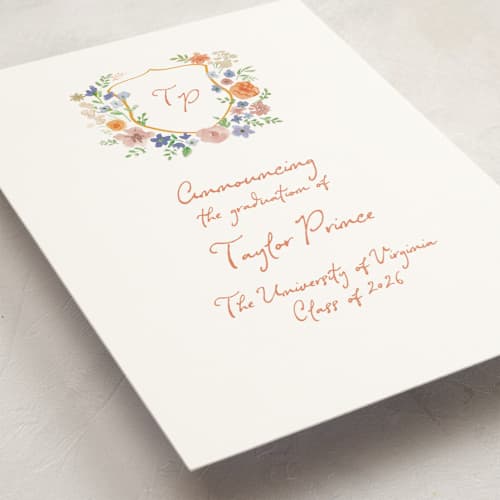 TP
Announcing
the graduation of
Taylor Prince
The University of Virginia
Class of 2026